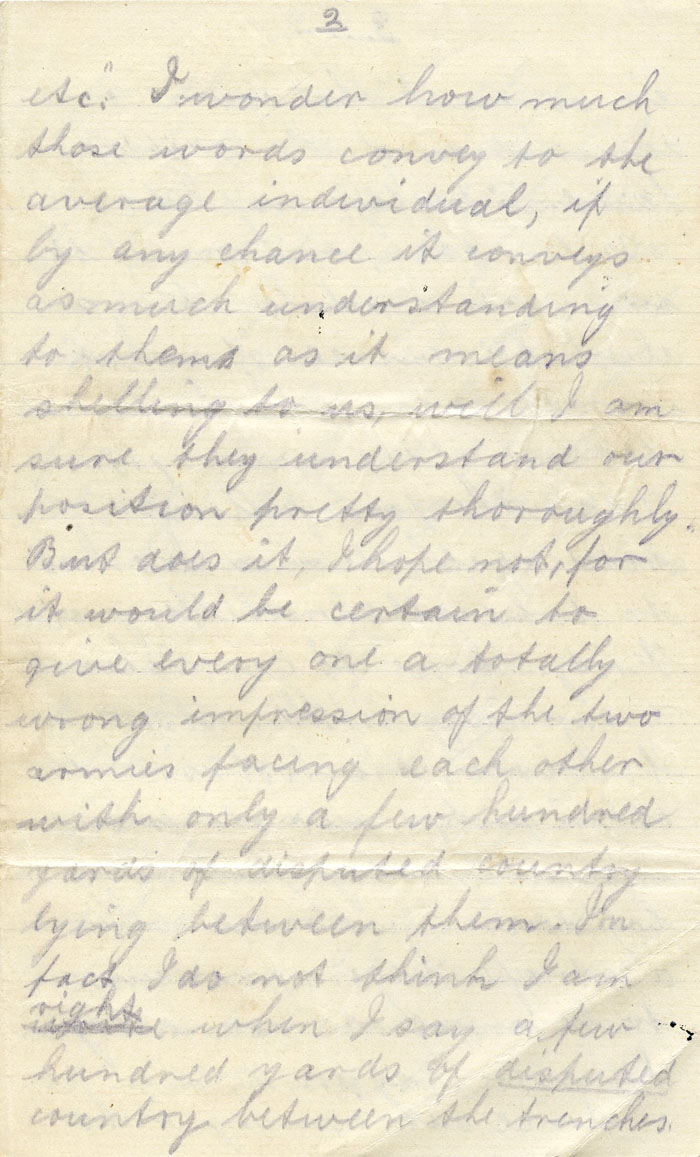 2
etc". I wonder how much
those words convey to the
average individual, if
by any chance it conveys
as much understanding
to them as it means
shelling to us, well I am
sure they understand our
position pretty thoroughly.
But does it, I hope not, for
it would be certain to
give every one a totally
wrong impression of the two
armies facing each other
with only a few hundred
yards of disputed country
lying between them. In
fact I do not think I am
right
when I say a few
hundred yards of disputed
country between the trenches.